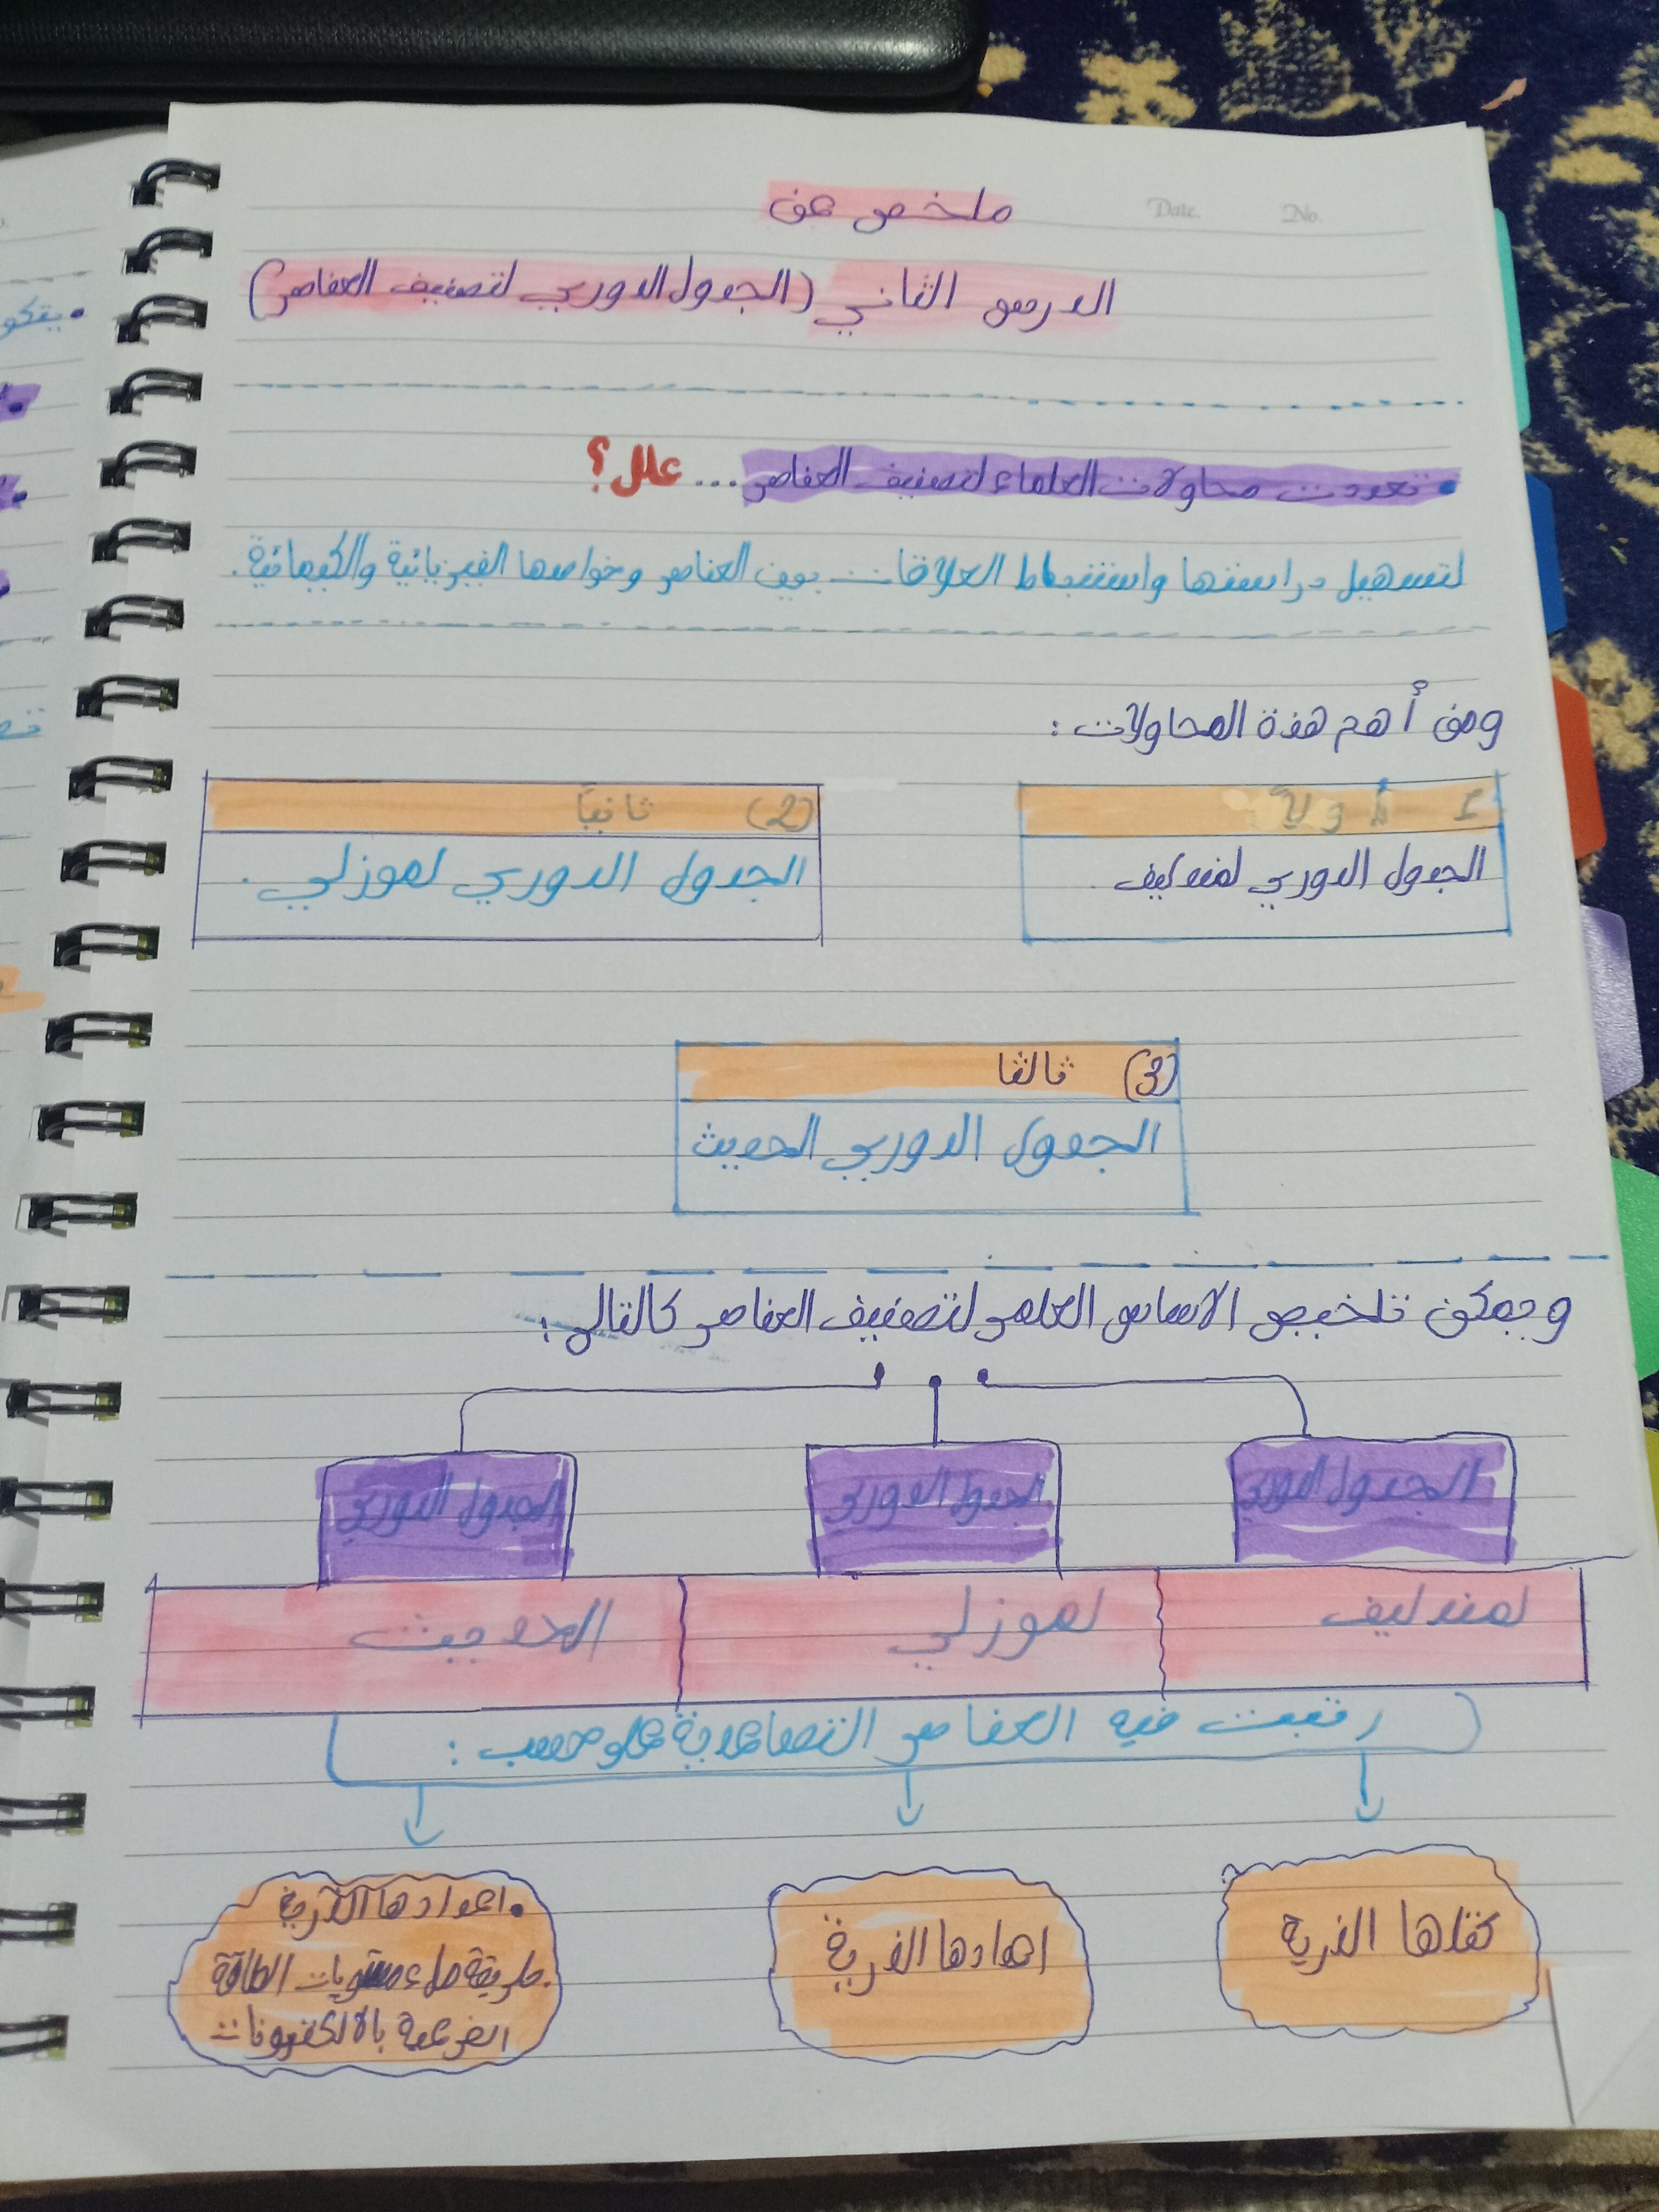 Date. No.
ملخص عن
الدرس الثاني (الجدول الدوري لتصنيف العناصر)
• تعددت محاولات العلماء لتصنيف العناصر ... علل؟
لتسهيل دراستها واستنباط العلاقات بين العناصر وخواصها الفيزيائية والكيميائية.
ومن أهم هذة المحاولات:
1 أولاً
الجدول الدوري لمندليف.
(2) ثانياً
الجدول الدوري لموزلي.
(3) ثالثا
الجدول الدوري الحديث
ويمكن تلخيص الاساس العلمي لتصنيف العناصر كالتالي:
الجدول الدوري
الجدول الدوري
الجدول الدوري
لمندليف
لموزلي
الحديث
رتبت فيه العناصر التصاعدية على حسب:
كتلها الذرية
اعدادها الذرية
• اعدادها الذرية
. طريقة ملء مستويات الطاقة
الفرعية بالالكترونات